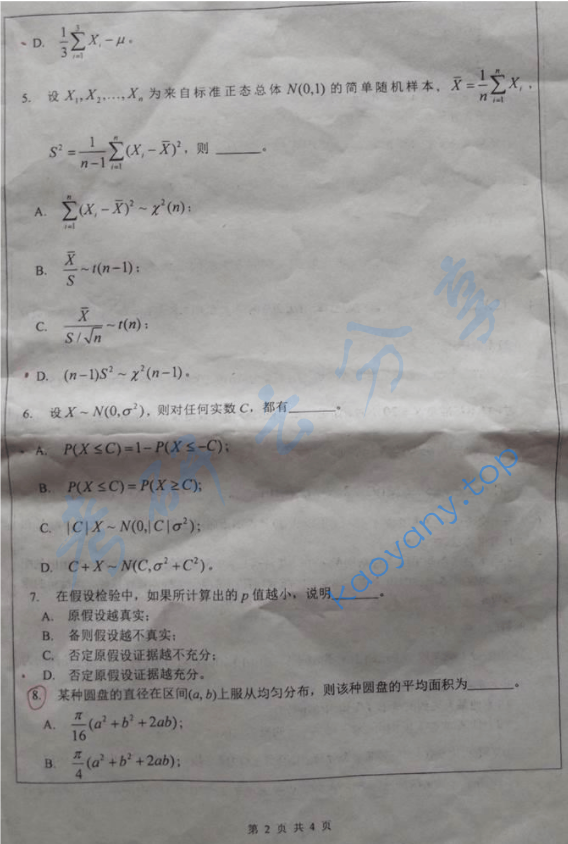 D. $\frac{1}{3}\sum_{i=1}^{3} X_i - \mu$。
5. 设 $X_1, X_2, \ldots, X_n$ 为来自标准正态总体 $N(0,1)$ 的简单随机样本，$\bar{X} = \frac{1}{n}\sum_{i=1}^{n} X_i$，
$S^2 = \frac{1}{n-1}\sum_{i=1}^{n}(X_i - \bar{X})^2$，则 ______。
A. $\sum_{i=1}^{n}(X_i - \bar{X})^2 \sim \chi^2(n)$；
B. $\frac{\bar{X}}{S} \sim t(n-1)$；
C. $\frac{\bar{X}}{S/\sqrt{n}} \sim t(n)$；
D. $(n-1)S^2 \sim \chi^2(n-1)$。
6. 设 $X \sim N(0, \sigma^2)$，则对任何实数 $C$，都有______。
A. $P(X \le C) = 1 - P(X \le -C)$；
B. $P(X \le C) = P(X \ge C)$;
C. $|C|X \sim N(0, |C|\sigma^2)$;
D. $C + X \sim N(C, \sigma^2 + C^2)$。
7. 在假设检验中，如果所计算出的 $p$ 值越小，说明______。
A. 原假设越真实；
B. 备则假设越不真实；
C. 否定原假设证据越不充分；
D. 否定原假设证据越充分。
8. 某种圆盘的直径在区间$(a, b)$上服从均匀分布，则该种圆盘的平均面积为______。
A. $\frac{\pi}{16}(a^2 + b^2 + 2ab)$;
B. $\frac{\pi}{4}(a^2 + b^2 + 2ab)$;
第 2 页 共 4 页
考研云分享
kaoyany.top